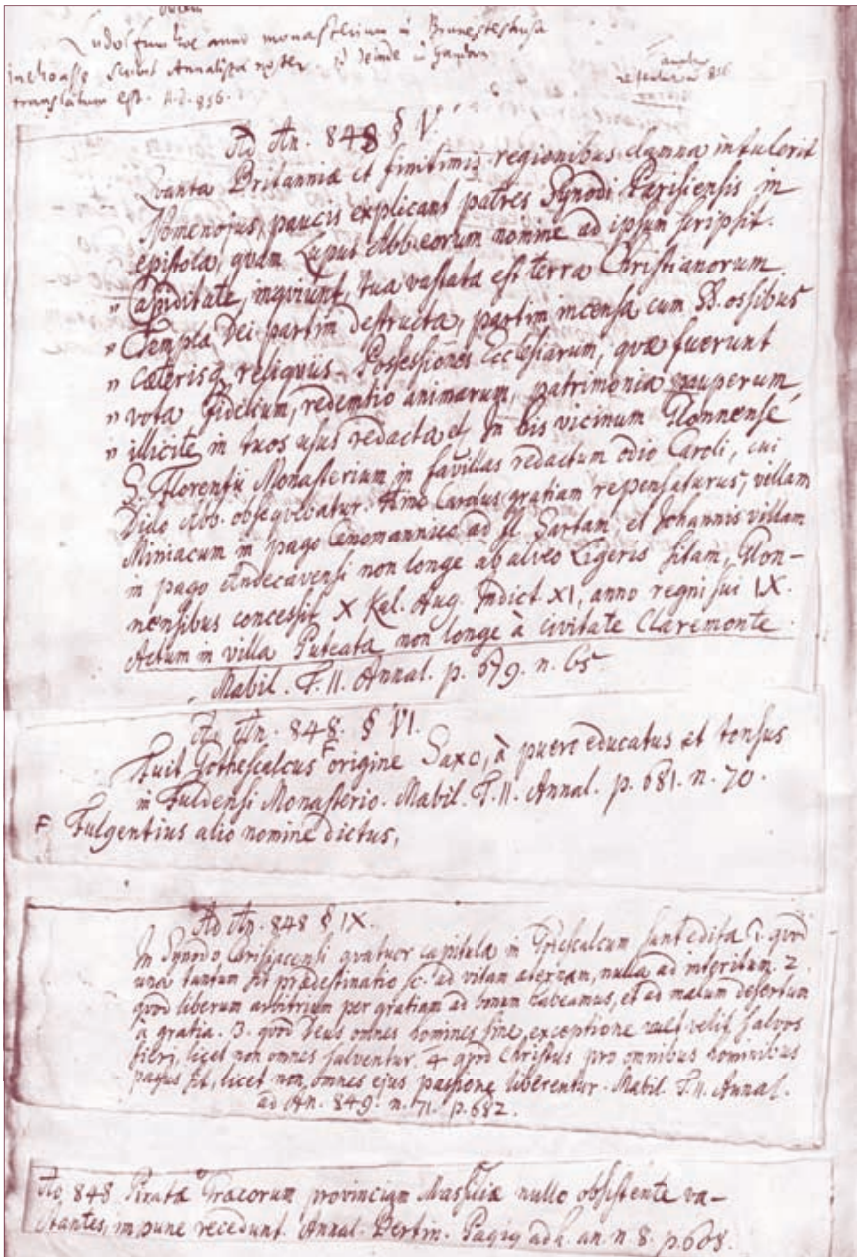 Ducem
Ludolfum hoc anno monasterium in Brunesteshusa
inchoasse scribit Annalista noster. Et deinde in Gander.
translatum est. A.D. 856.
referenda 856
Ad An. 848 § V.
Quanta Britanniæ et finitimis regionibus damna intulerit
Nomenojus, paucis explicant patres Synodi Parisiensis in
epistola, quam Lupus Abb. eorum nomine ad ipsum scripsit.
" Cupiditate, inqviunt, tua vastata est terra Christianorum
" Templa Dei partim destructa, partim incensa cum SS. ossibus
" cæterisq reliquiis. Possessiones Ecclesiarum, qvæ fuerunt
" vota fidelium, redemtio animarum, patrimonia pauperum
" illicite in tuos usus redacta et In his vicinum Glonnense
S. Florentii Monasterium in favillas redactum odio Caroli, cui
Dido Abb. obseqvebatur. Carolus gratiam repensaturus, villam
Miniacum in pago Cenomannico ad fl. Sartam, et Johannis villam
in pago Andecavensi non longe ab alveo Ligeris sitam, Glon-
nensibus concessit X Kal. Aug. Indict. XI, anno regni sui IX.
Actum in villa Puteata non longe à civitate Claremonte.
Mabil. T. II. Annal. p. 679. n. 65
Ad An. 848. § VI.
Fuit Gothescalcus F origine Saxo, à puero educatus et tonsus
in Fuldensi Monasterio. Mabil. T. II. Annal. p. 681. n. 70.
F Fulgentius alio nomine dictus,
Ad An. 848 § IX.
In Synodo Carisiacensi qvatuor capitula in Gothescalcum sunt edita 1. qvod
una tantum sit prædestinatio sc. ad vitam æternam, nulla ad interitum. 2.
qvod liberum arbitrium per gratiam ad bonum habeamus, et ad malum desertum
a gratia. 3. qvod Deus omnes homines sine exceptione velit salvos
fieri, licet non omnes salventur. 4 qvod Christus pro omnibus hominibus
passus sit, licet non omnes ejus passione liberentur. Mabil. T. II. Annal.
ad An. 849. n. 71. p. 682.
Ao 848 Piratæ Græcorum provinciam Massiliæ nullo obsistente va-
stantes, impune recedunt. Annal. Bertin. Pagig ad h. an. n. 8. p. 608.